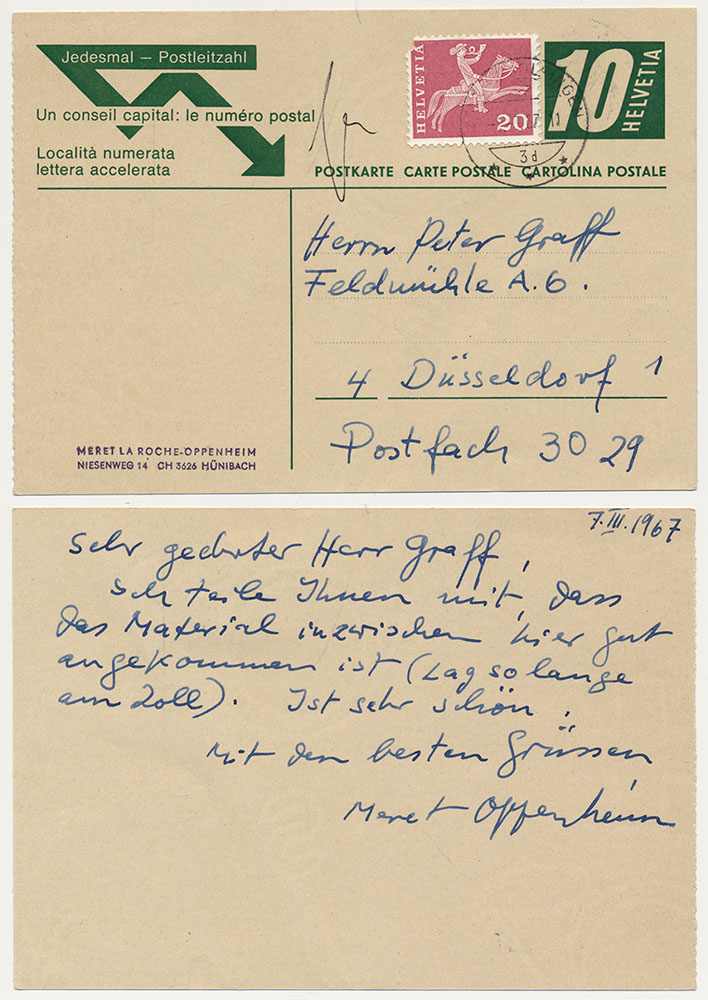 Jedesmal – Postleitzahl
Un conseil capital: le numéro postal
Località numerata
lettera accelerata
HELVETIA
20
10
HELVETIA
3d
POSTKARTE CARTE POSTALE CARTOLINA POSTALE
Herrn Peter Graff
Feldmühle A.G.
4 Düsseldorf 1
Postfach 30 29
MERET LA ROCHE-OPPENHEIM
NIESENWEG 14 CH 3626 HÜNIBACH
7.III.1967
Sehr geehrter Herr Graff,
Ich teile Ihnen mit, dass
das Material inzwischen hier gut
angekommen ist (Lag so lange
am Zoll). Ist sehr schön,
Mit den besten Grüssen
Meret Oppenheim